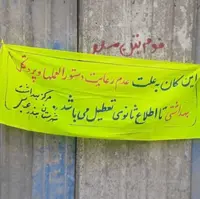 این مکان به علت عدم رعایت دستورالعملها و پروتکل
بهداشتی تا اطلاع ثانوی تعطیل می باشد
مرکز بهداشت
شهرستان بندرعباس